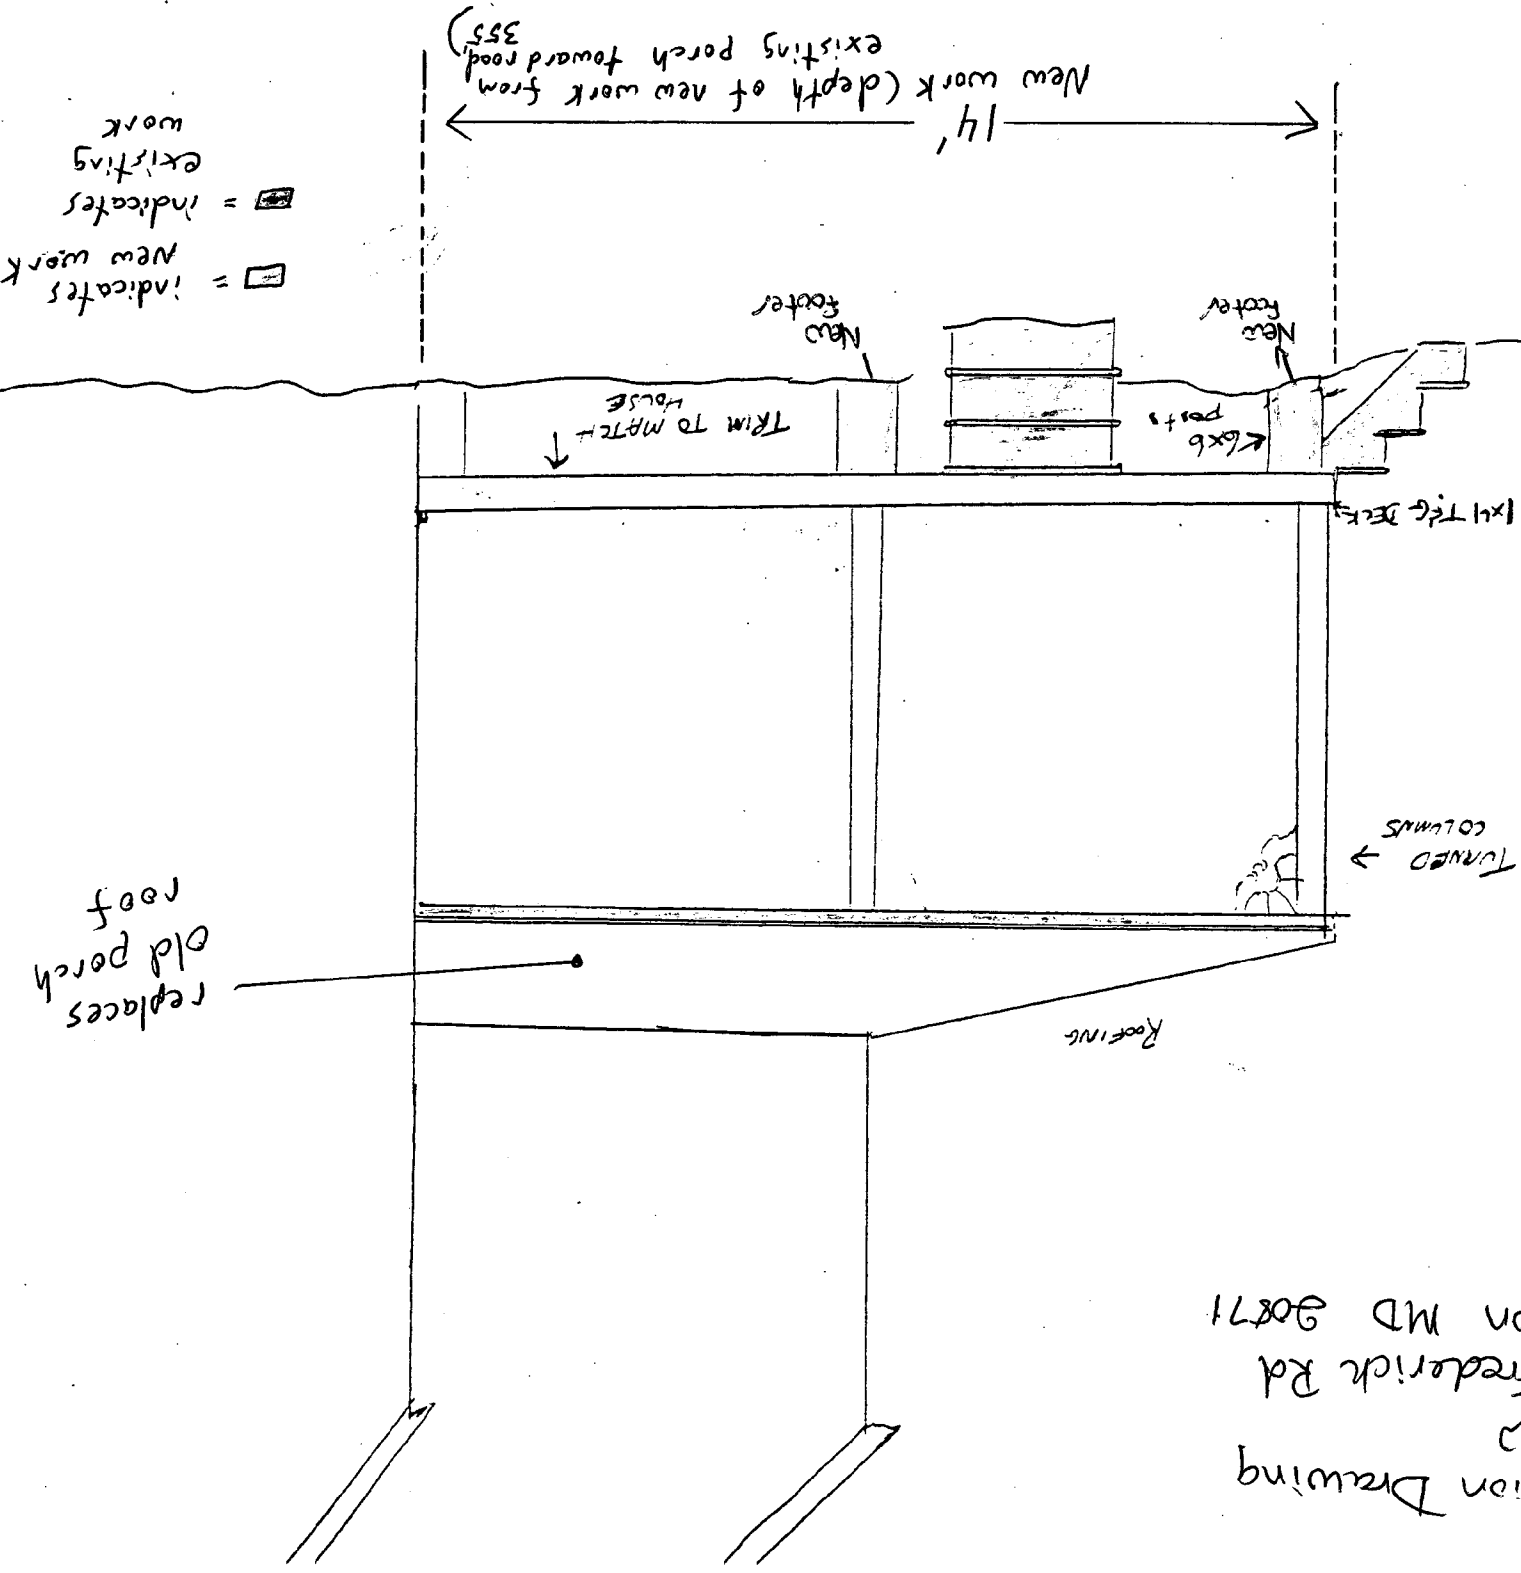 ion Drawing
rederick Rd
on MD 20871
ROOFING
replaces
old porch
roof
TURNED
COLUMNS
1x4 T&G DECK
6x6
posts
TRIM TO MATCH
HOUSE
New
Footer
New
Footer
= indicates
New work
= indicates
existing
work
14'
New work (depth of new work from
existing porch toward road,
355)